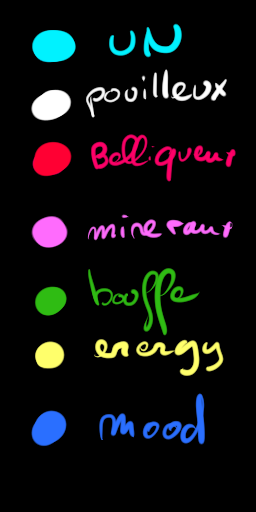 UN
pouilleux
Belliqueux
mineraux
bouffe
energy
mood